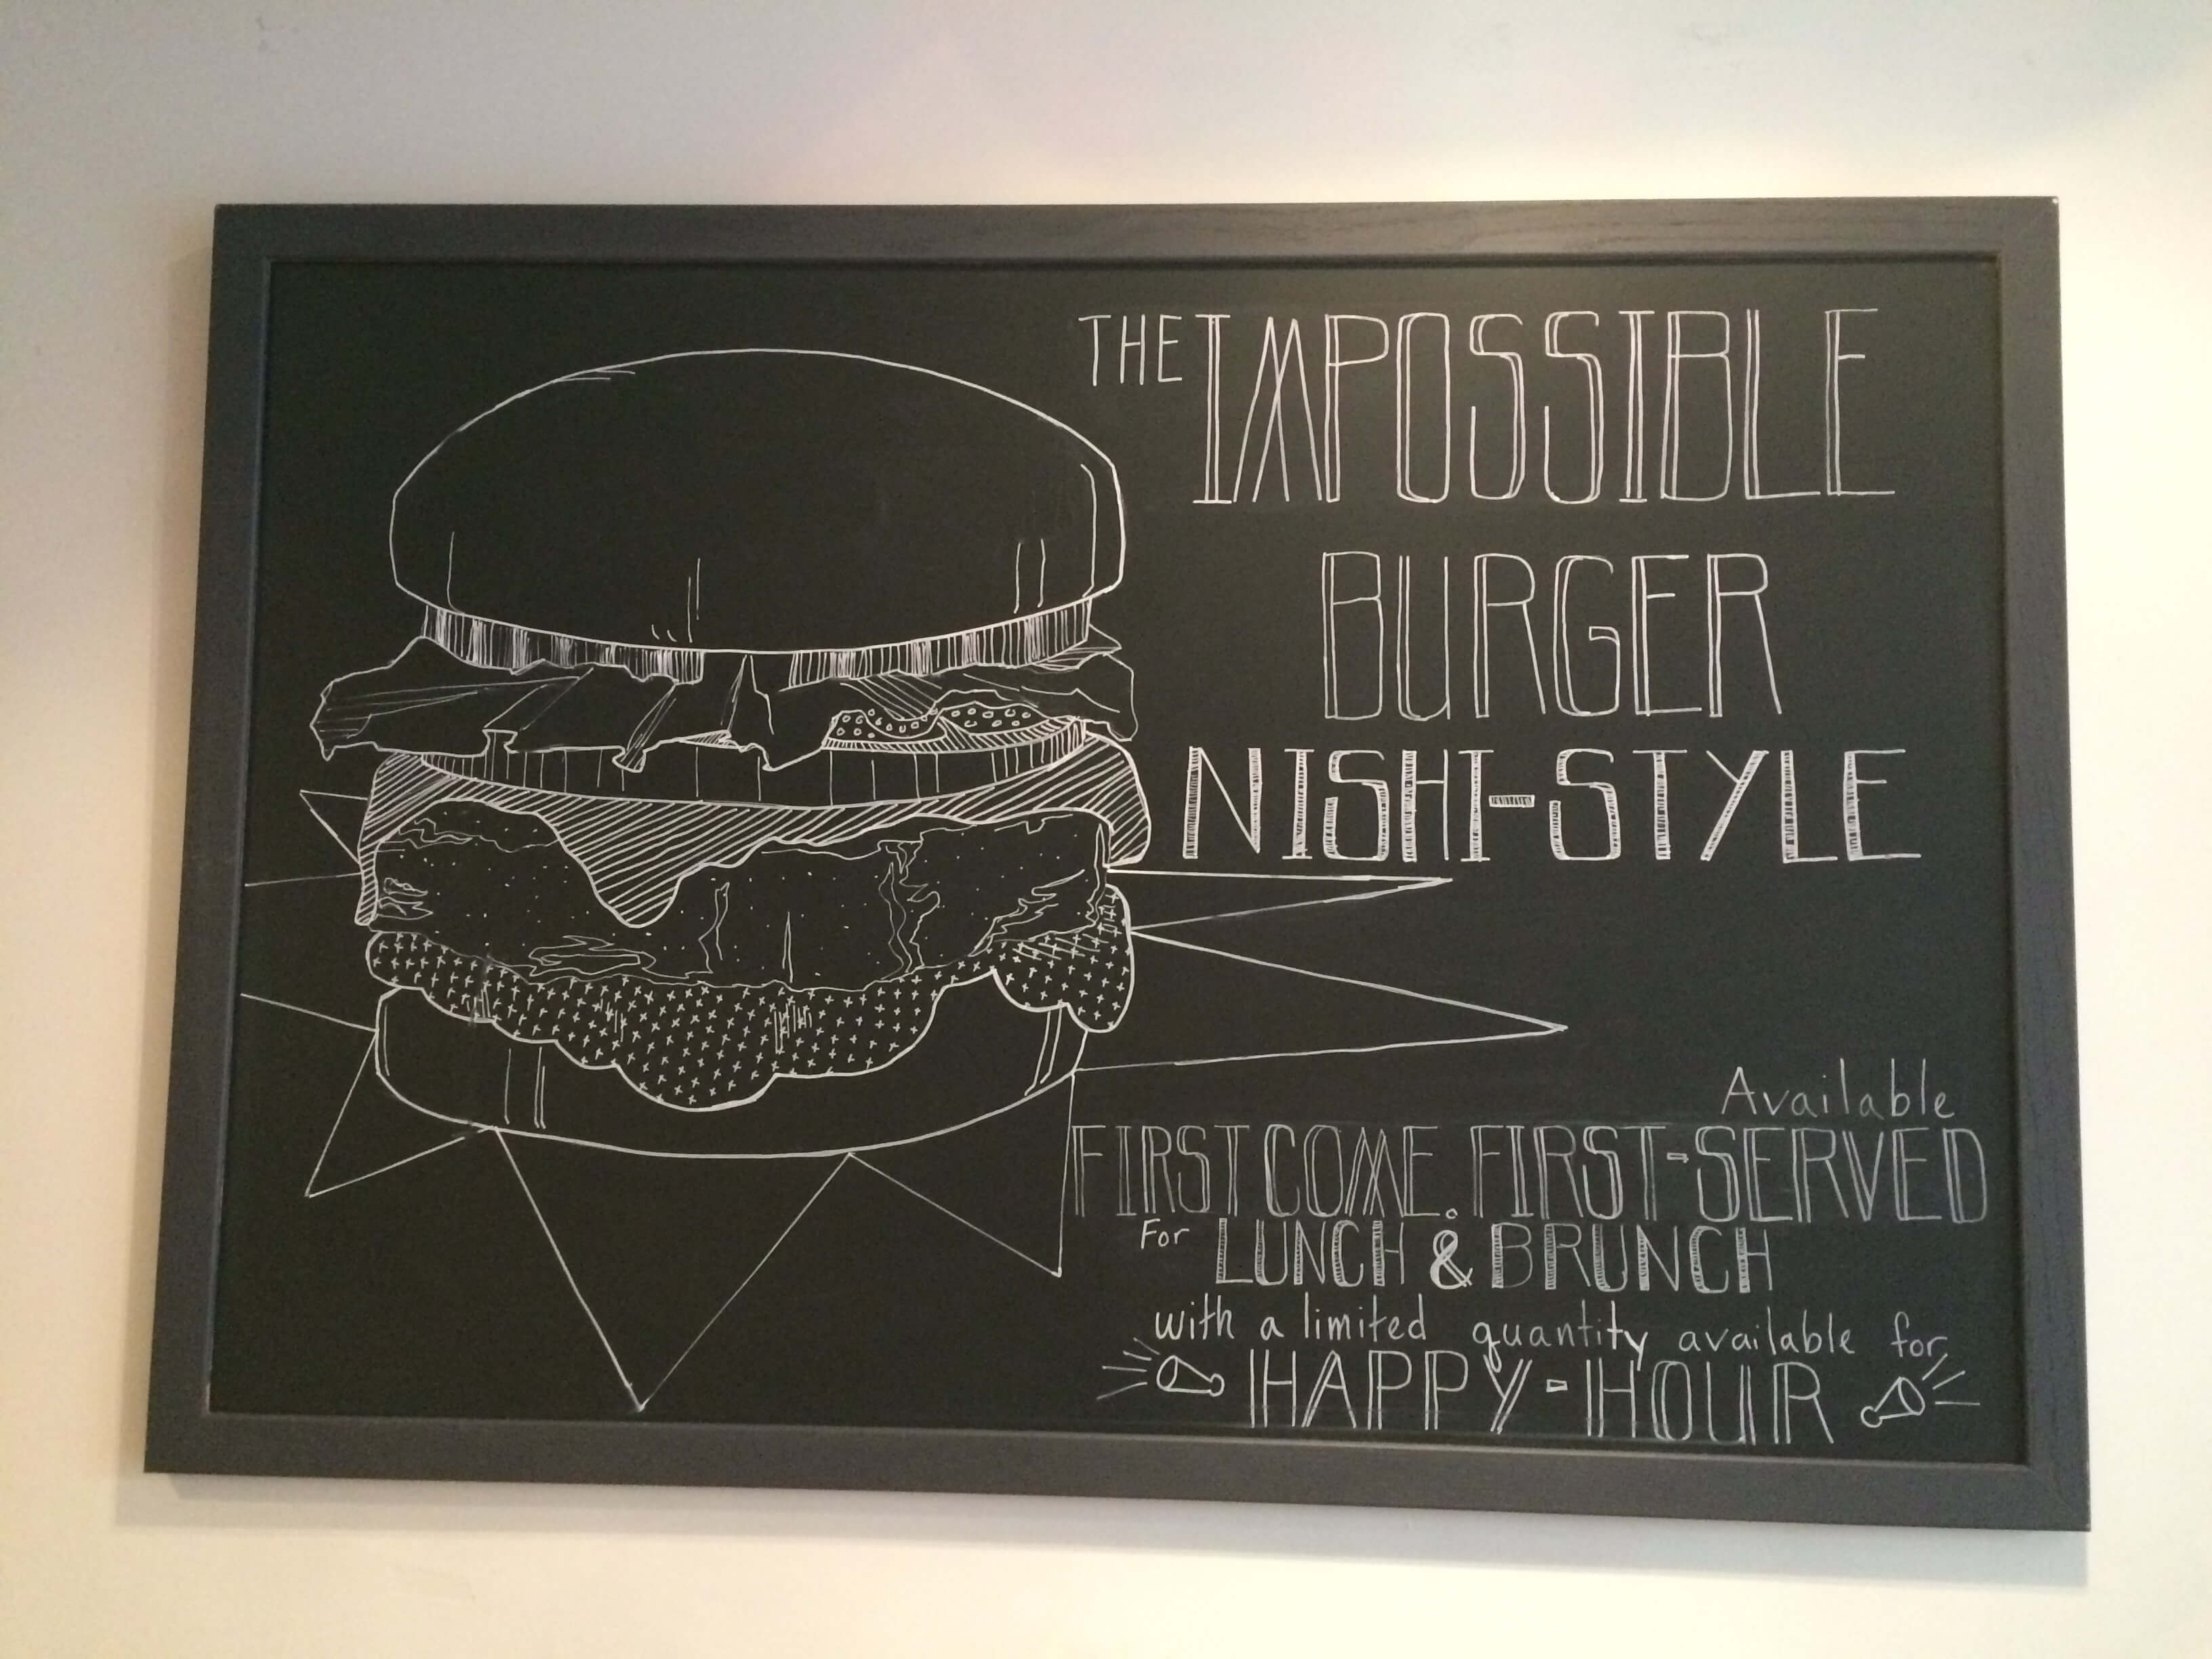 THE IMPOSSIBLE
BURGER
NISHI-STYLE
Available
FIRST COME. FIRST-SERVED
For LUNCH & BRUNCH
with a limited quantity available for
HAPPY-HOUR